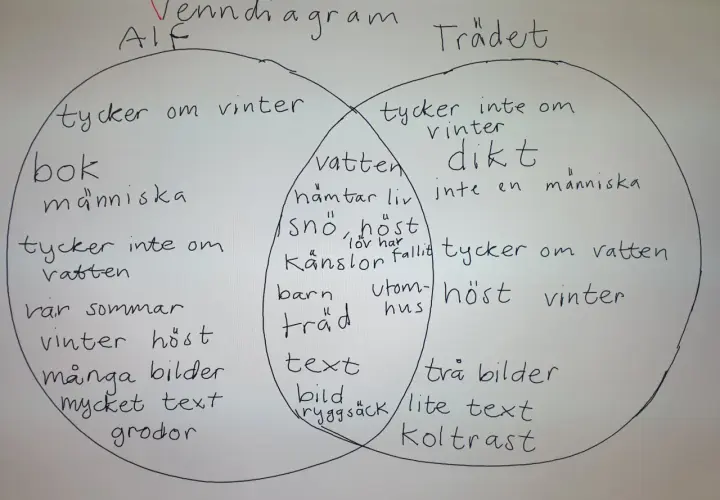 Venndiagram
Alf
tycker om vinter
bok
människa
tycker inte om
vatten
vår sommar
vinter höst
många bilder
mycket text
grodor
vatten
hämtar liv
snö, höst
löv har
fallit
känslor
barn utom-
hus
träd
text
bild
ryggsäck
Trädet
tycker inte om
vinter
dikt
inte en människa
tycker om vatten
höst vinter
två bilder
lite text
koltrast